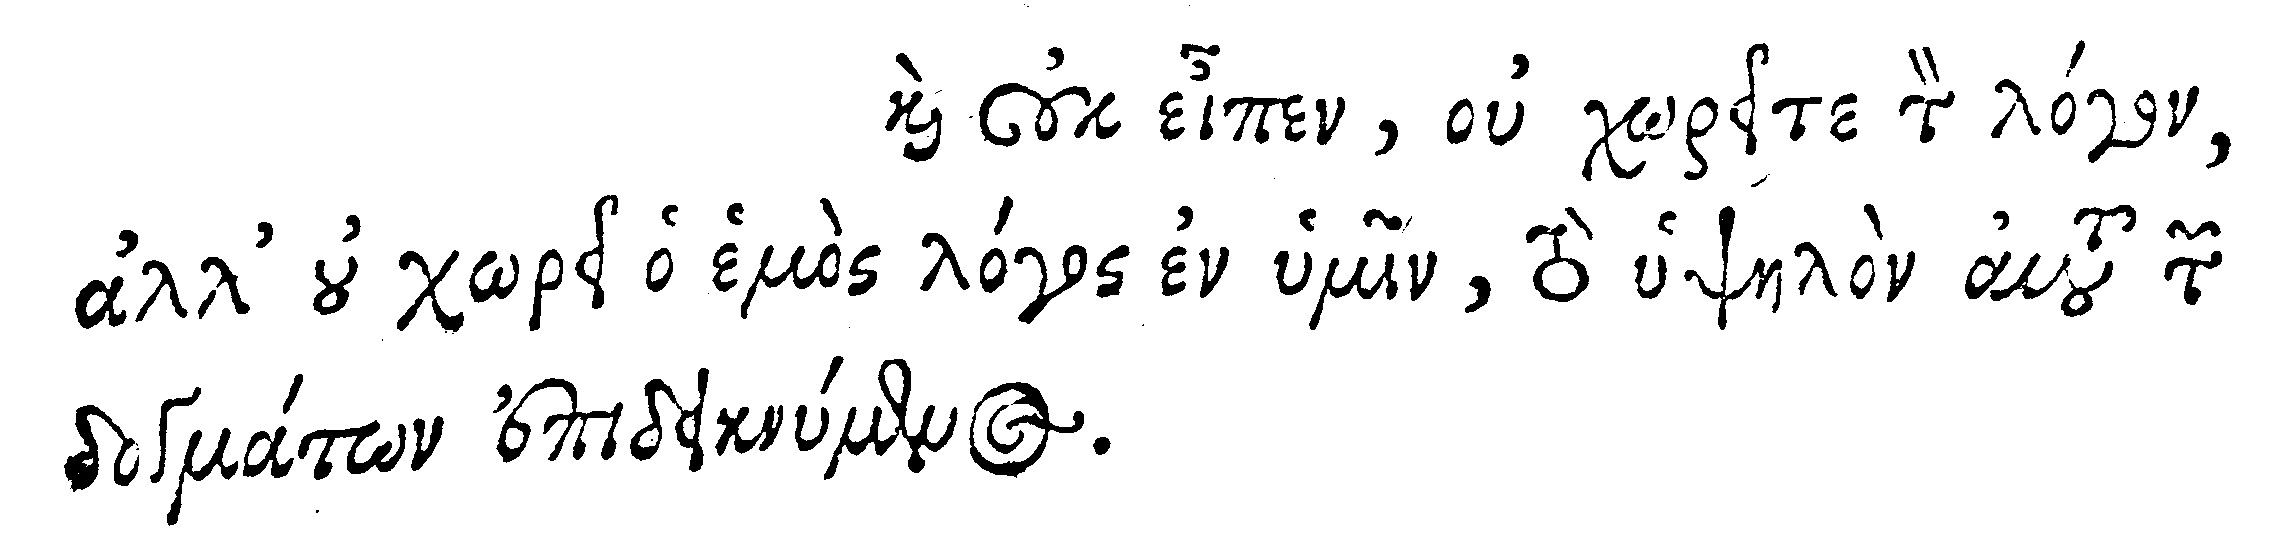 καὶ οὐκ εἶπεν, οὐ χωρεῖτε τὸν λόγον,
ἀλλ' οὐ χωρεῖ ὁ ἐμὸς λόγος ἐν ὑμῖν, τὸ ὑψηλὸν αὐτοῦ τῶν
δογμάτων ἐπιδεικνύμενος.